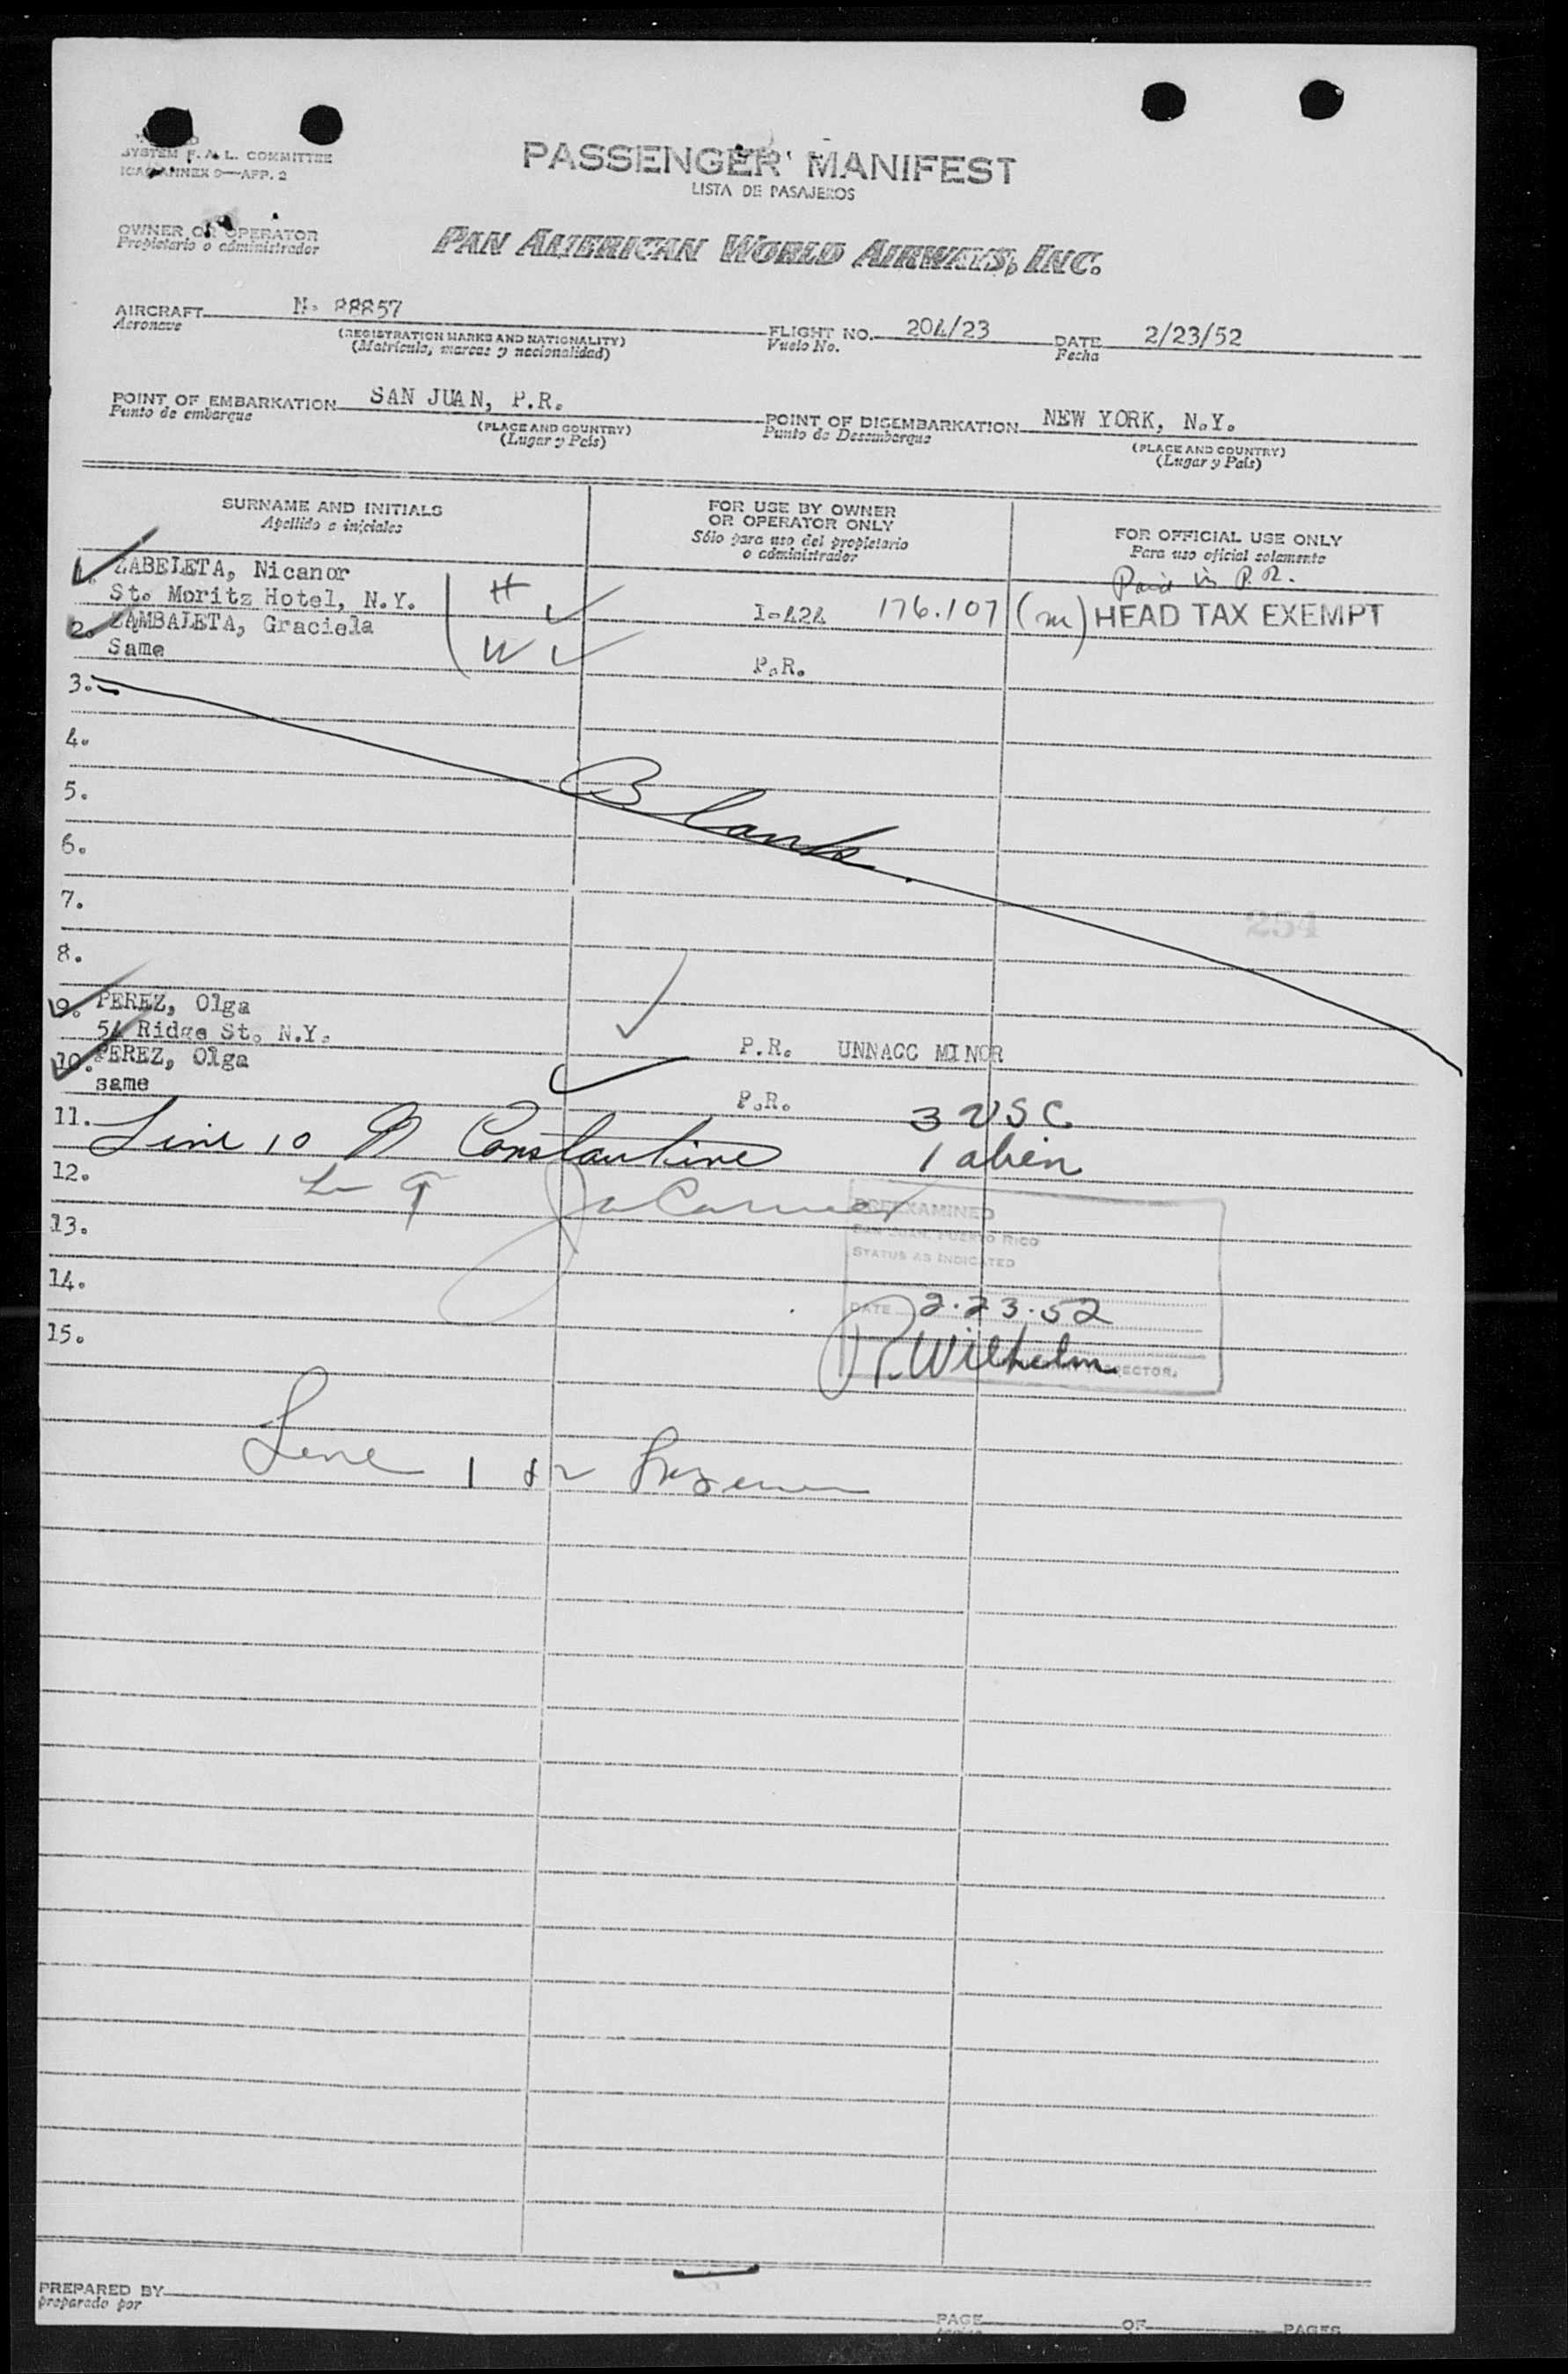 SYSTEM F.A.L. COMMITTEE
ICAO ANNEX 9—APP. 2
PASSENGER MANIFEST
LISTA DE PASAJEROS
OWNER OR OPERATOR
Propietario o administrador
PAN AMERICAN WORLD AIRWAYS, INC.
AIRCRAFT N. 88857
Aeronave
(REGISTRATION MARKS AND NATIONALITY)
(Matrícula, marcas y nacionalidad)
FLIGHT NO. 204/23
Vuelo No.
DATE 2/23/52
Fecha
POINT OF EMBARKATION SAN JUAN, P.R.
Punto de embarque
(PLACE AND COUNTRY)
(Lugar y País)
POINT OF DISEMBARKATION NEW YORK, N.Y.
Punto de Desembarque
(PLACE AND COUNTRY)
(Lugar y País)
SURNAME AND INITIALS
Apellido e iniciales
FOR USE BY OWNER
OR OPERATOR ONLY
Sólo para uso del propietario
o administrador
FOR OFFICIAL USE ONLY
Para uso oficial solamente
1. ZABELETA, Nicanor
Paid in P.R.
St. Moritz Hotel, N.Y. H I-424 176.107 (m) HEAD TAX EXEMPT
2. ZAMBALETA, Graciela
Same W P.R.
3.
4.
5.
Blank
6.
7.
254
8.
9. PEREZ, Olga
54 Ridge St. N.Y. P.R. UNNACC MINOR
10. PEREZ, Olga
same P.R. 3 USC
11. Line 10 Constantine 1 alien
12.
PREEXAMINED
SAN JUAN, PUERTO RICO
13.
STATUS AS INDICATED
14.
DATE 2.23.52
15.
R. Wilhelm
INSPECTOR.
Line 1 & 2
PREPARED BY
preparado por
PAGE OF PAGES